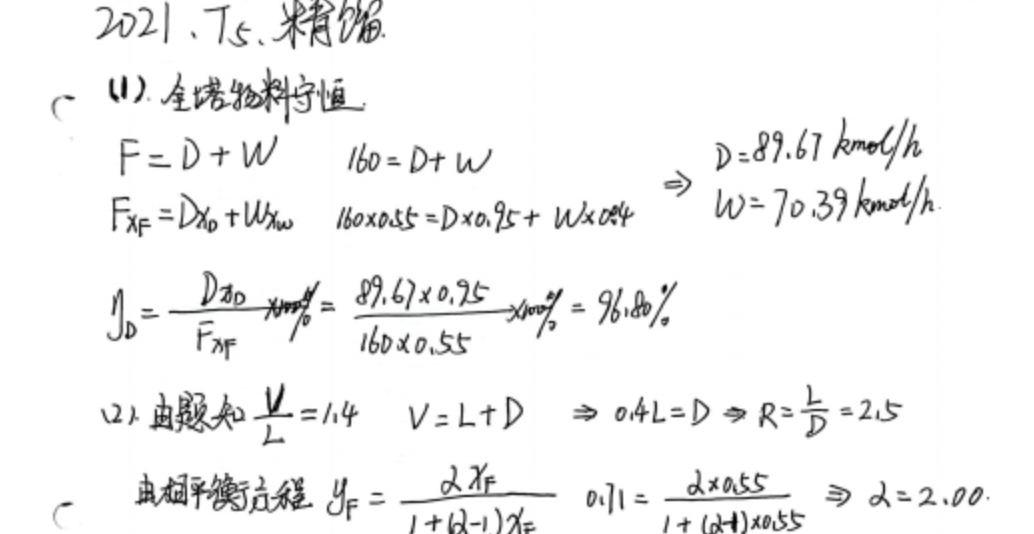 2021、T5、精馏
(1). 全塔物料守恒
F = D + W 160 = D + W ⇒ D = 89.67 kmol/h
FxF = DxD + WxW 160×0.55 = D×0.95 + W× W = 70.39 kmol/h.
ηD = DxD / FxF ×100% = 89.67×0.95 / 160×0.55 ×100% = 96.80%
(2). 由题知 V/L = 1.4 V = L + D ⇒ 0.4L = D ⇒ R = L/D = 2.5
由相平衡方程 yF = αxF / 1+(α-1)xF 0.71 = α×0.55 / 1+(α-1)×0.55 ⇒ α = 2.00.